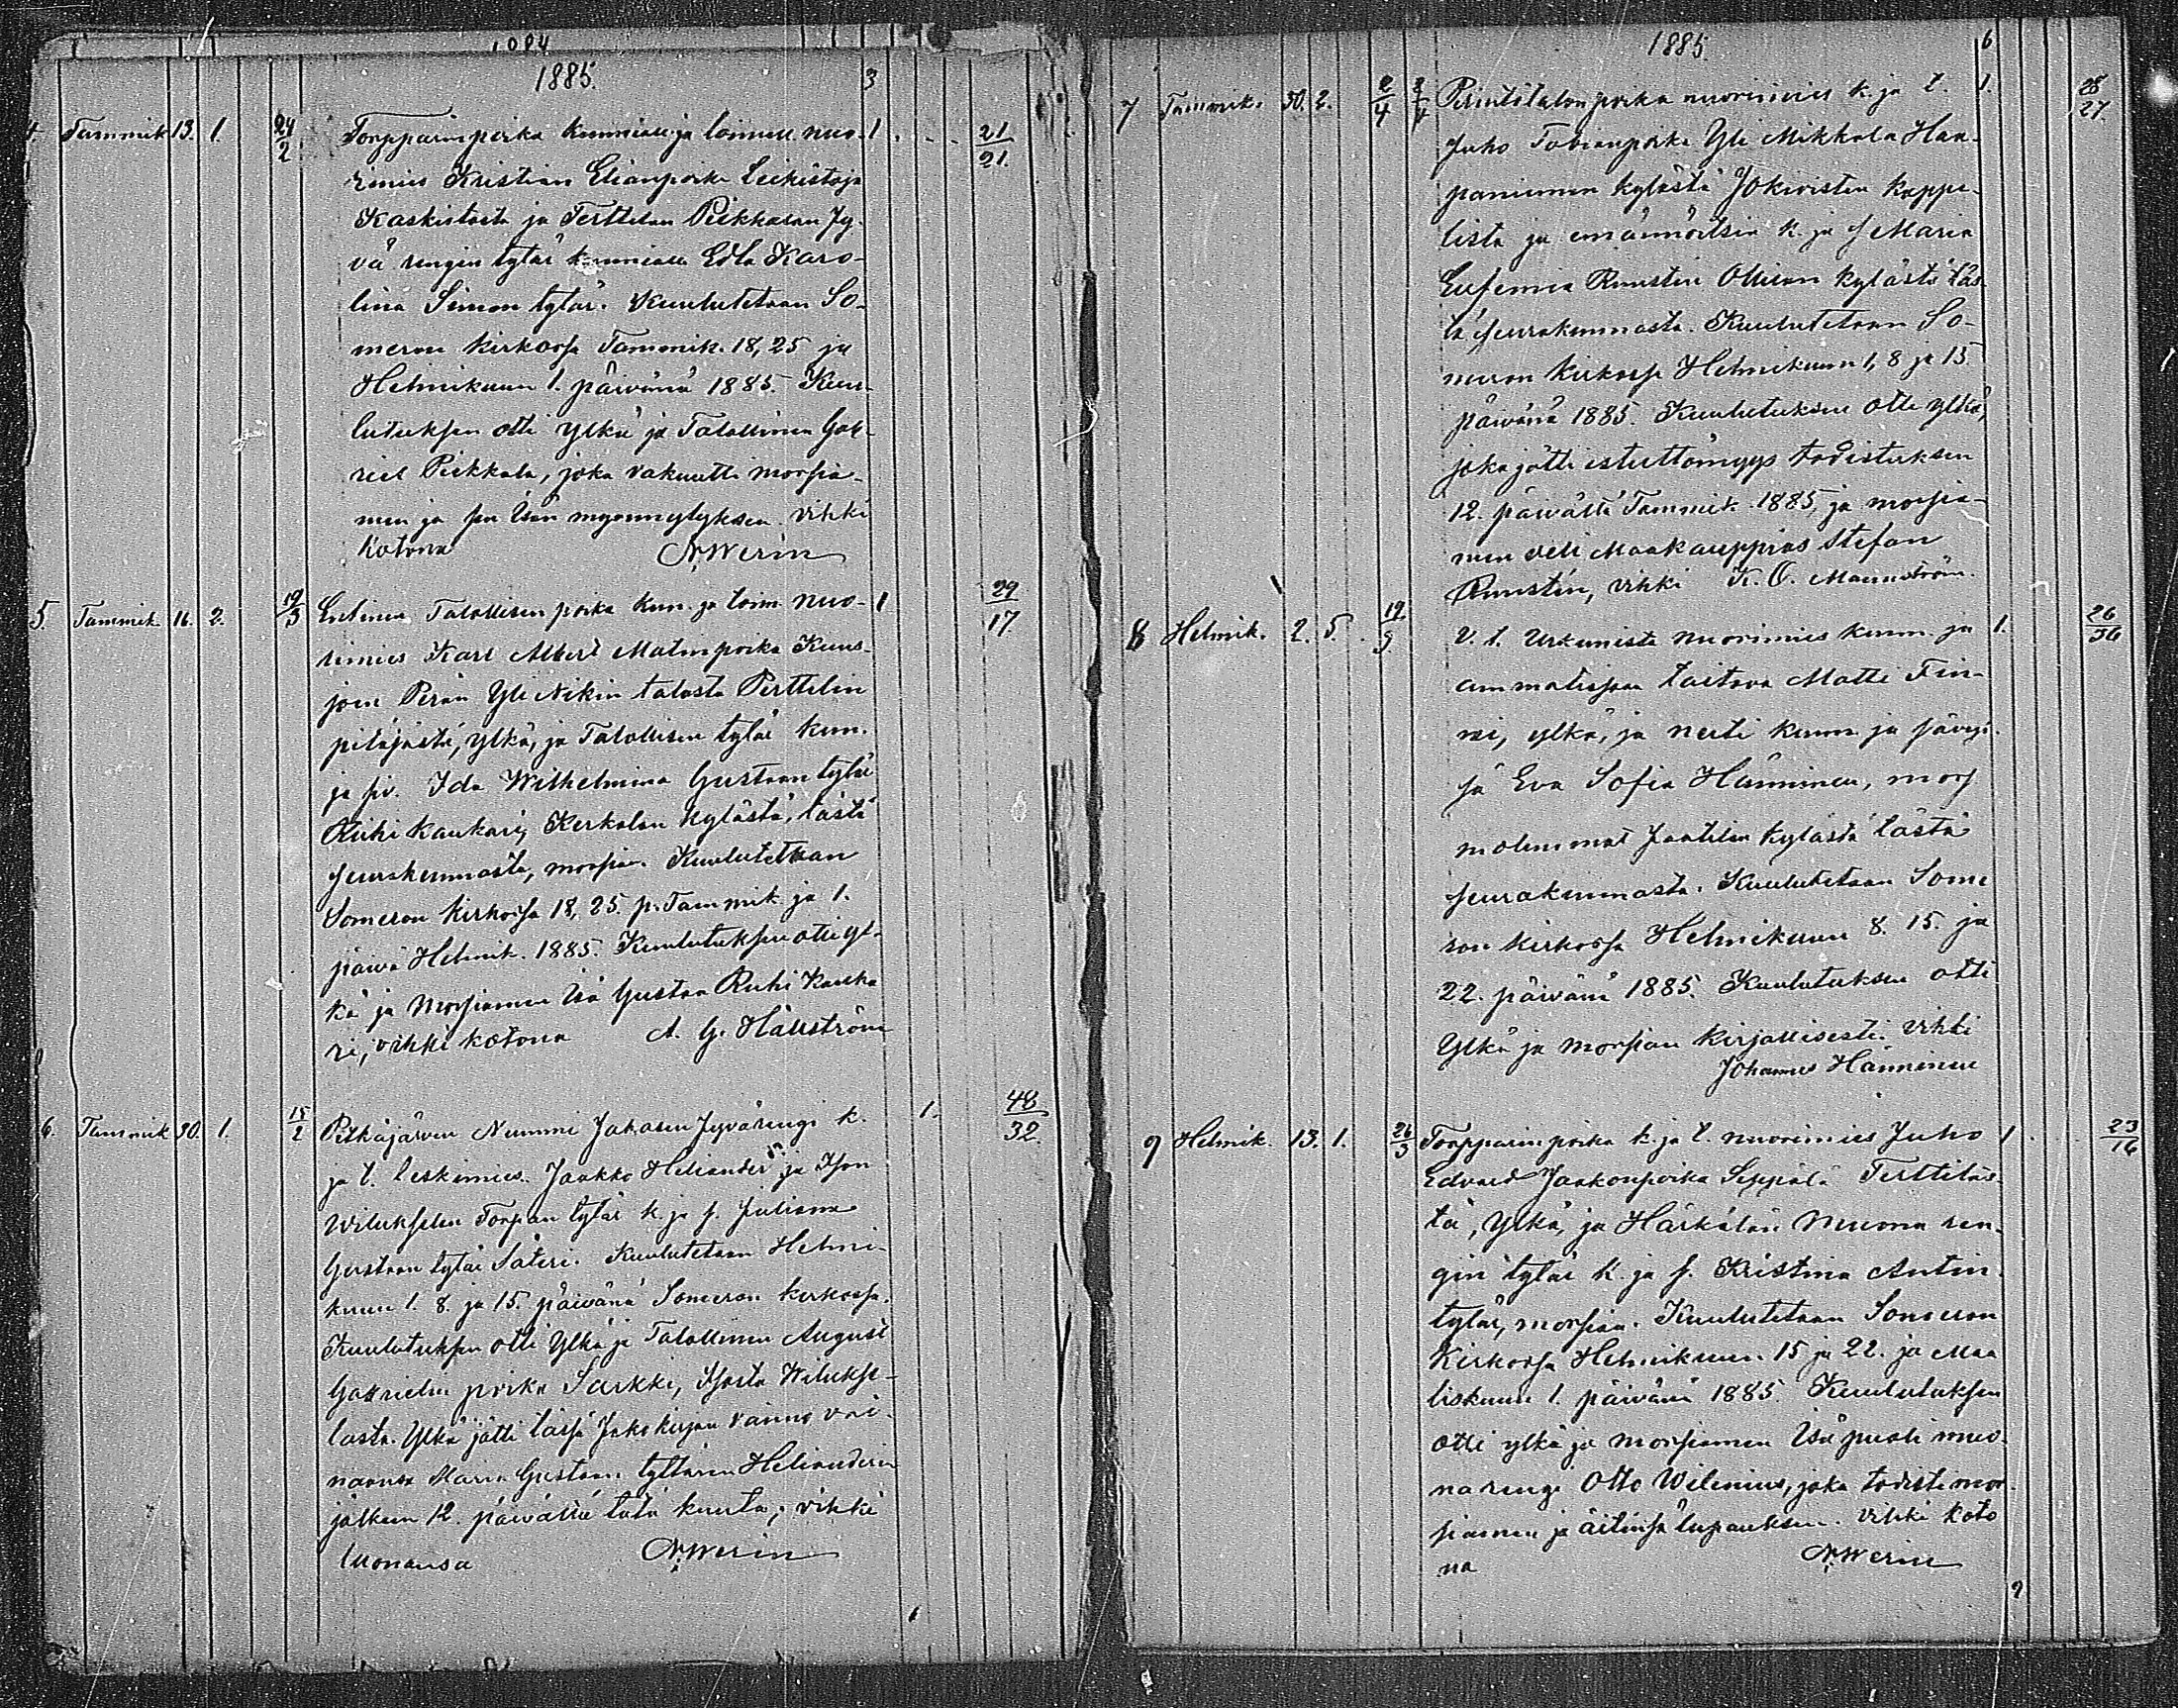 1084
1885. 3
4. Tammik 13. 1. 24/2 Torpparinpoika kunniall. ja toimell. nuo- 1 21/21.
rimies Kristian Elianpoika Leikistöja
Kaskistosta ja Terttilan Pickkalan Jy-
vä rengin tytär kunniall Edla Karo-
lina Simon tytär. Kuulutetaan So-
meron kirkossa Tammik. 18, 25 ja
Helmikuun 1. päivänä 1885. Kuu-
lutuksen otti ylkä ja Talollinen Gab-
riel Pickkala, joka vakuutti morsia-
men ja sen Isän myönnytyksen. Vihki
kotona N. Werin
5. Tammik 16. 2. 19/3 Entinen Talollisen poika kun. ja toim. nuo- 1 29/17.
rimies Karl Albert Matinpoika Kuus-
joen Perän Yli Nikin talosta Perttelin
pitäjästä, ylkä, ja Talollisen tytär kun.
ja siv. Ida Wilhelmina Gustaan tytär
Ruhi Kaukari, Kerkolan kylästä, tästä
seurakunnasta, morsian. Kuulutetaan
Someron kirkossa 18, 25. p. Tammik. ja 1.
päivä Helmik. 1885. Kuulutuksen otti yl-
kä ja Morsiamen Isä Gustaa Ruhi Kauka
ri; vihki kotona A. G. Hällström
6. Tammik 30. 1. 15/2 Pitkäjärven Nummi Jakasen Jyvärengi k. 1. 48/32.
ja t. leskimies Jaakko Heliander ja Ison
Wiluksela Torpan tytär k. ja s. Juliana
Gustaan tytär Säteri. Kuulutetaan Helmi-
kuun 1. 8. ja 15. päivänä Someron kirkossa.
Kuulutuksen otti Ylkä ja Talollinen August
Gabrielin poika Sarkki, Isosta Wilukse-
lasta. Ylkä jätti tässä Jakokirjan vaimo vai-
naansa Maria Gustaan tyttären Helianderin
jälkeen 12. päivältä tätä kuuta; vihki
luonansa N. Werin
1885. 6
7 Tammik. 30. 2. 2/4 Perintötalon poika nuorimies k. ja t. 1. 28/27.
Juho Tobianpoika Yli Mikkola Haa-
paniemen kylästä Jokioisten kappe-
lista ja emännöitsiä k. ja s Maria
Eufemia Runsten Ollilan kylästä täs-
tä seurakunnasta. Kuulutetaan So-
meron kirkossa Helmikuun 1, 8 ja 15
päivänä 1885. Kuulutuksen otti ylkä,
joka jätti esteettömyys todistuksen
12. päivältä Tammik 1885, ja morsia-
men veli Maakauppias Stefan
Runstén, vihki K. O. Mannström.
8 Helmik. 2. 5. 19/3 V. t. Urkunista nuorimies kunn. ja 1. 26/36
ammatissaan taitava Matti Fin-
ni, ylkä, ja neiti kunn. ja säveji-
sä Eva Sofia Hänninen, mors
molemmat Jaatilan kylästä tästä
seurakunnasta. Kuulutetaan Some
ron kirkossa Helmikuun 8. 15. ja
22. päivänä 1885. Kuulutuksen otti
Ylkä ja morsian kirjallisesti. Vihki
Johannes Hänninen
9 Helmik. 13. 1. 26/3 Torpparin poika k. ja t. nuorimies Juho 1 23/16
Edvard Jaakonpoika Seppälä Terttiläs-
tä, Ylkä, ja Härkälän Muona ren-
gin tytär k. ja s. Kristina Antin
tytär, morsian. Kuulutetaan Someron
Kirkossa Helmikuun 15 ja 22. ja Maa
liskuun 1. päivänä 1885. Kuulutuksen
otti ylkä ja morsiamen Isä puoli muo-
na rengi Otto Wilenius, joka todisti mor-
siamen ja äitinsä lupauksen. Vihki koto
na N. Werin
9